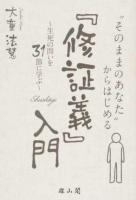 “そのままのあなた”
からはじめる
『修証義』入門
Shushogi
～生死の問いを31節に学ぶ～
大童法慧
雄山閣